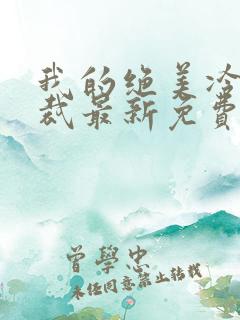 我的绝美冷
裁最新免費
曾學忠
未经同意禁止转载